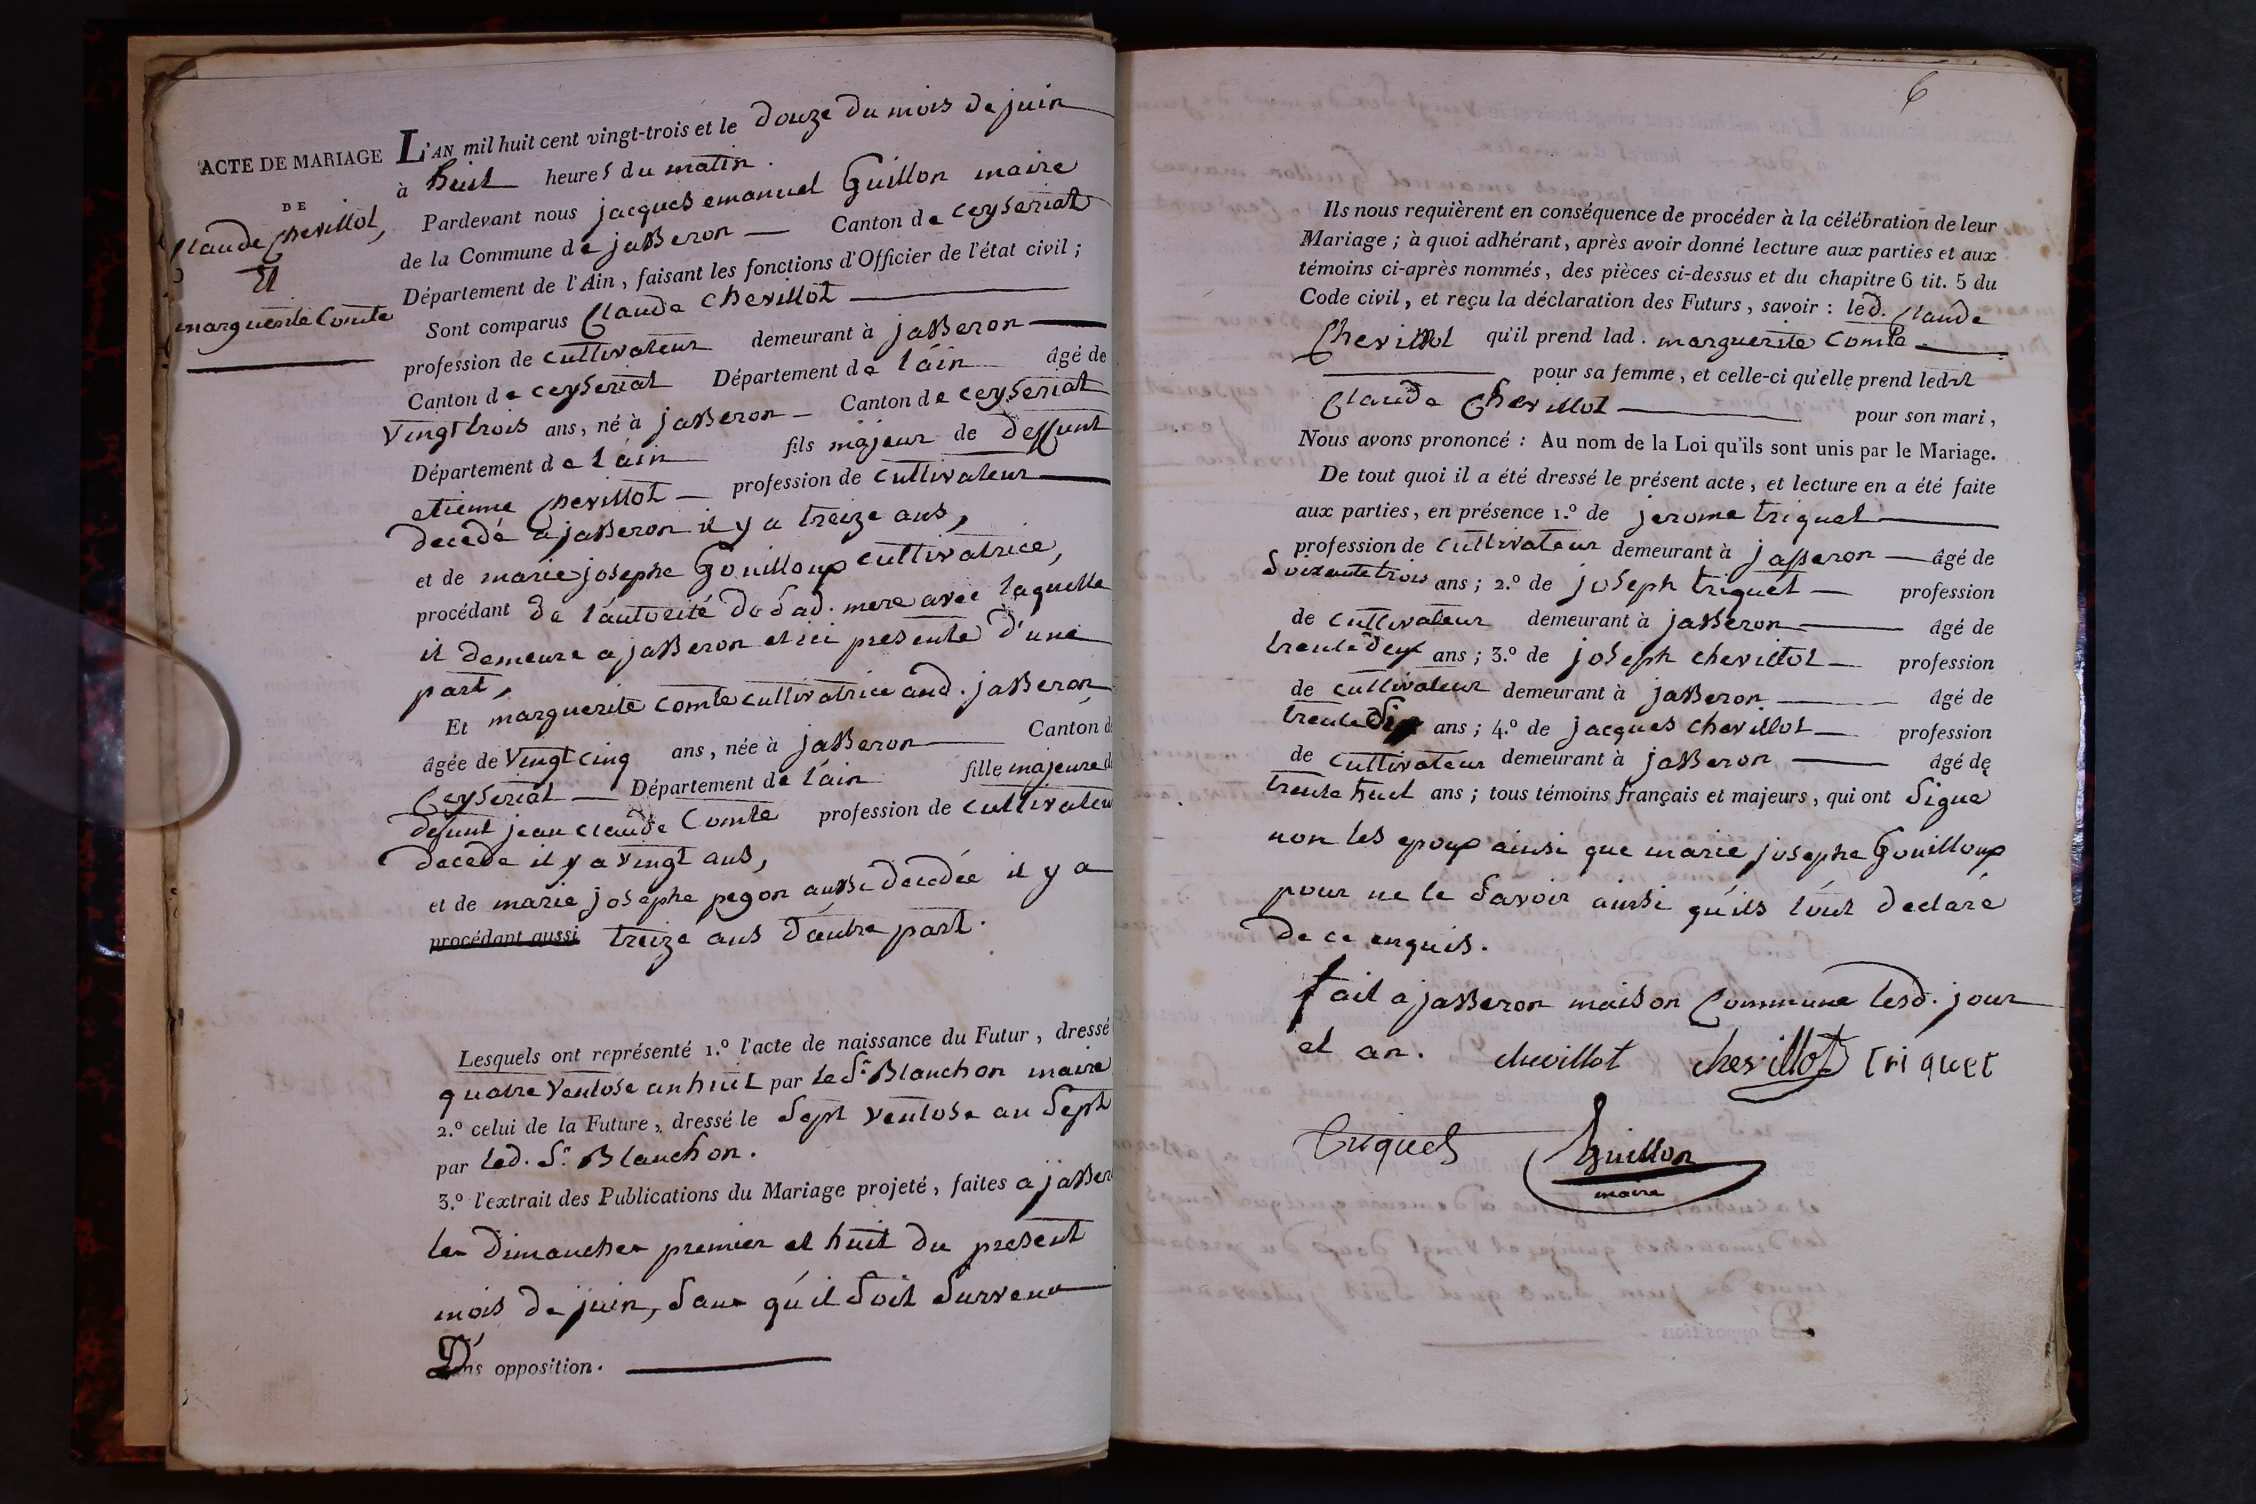 ACTE DE MARIAGE
DE
Claude Chevillot,
Et
marguerite Comte
L'AN mil huit cent vingt-trois et le douze du mois de juin
à huit heures du matin.
Pardevant nous jacques emanuel Guillon maire
de la Commune de jasseron — Canton de ceyseriat
Département de l'Ain, faisant les fonctions d'Officier de l'état civil;
Sont comparus Claude Chevillot
profession de cultivateur demeurant à jasseron
Canton de ceyseriat Département de l'ain âgé de
vingt trois ans, né à jasseron — Canton de ceyseriat
Département de l'ain fils majeur de deffunt
etienne Chevillot — profession de cultivateur
decedé a jasseron il y a treize ans,
et de marie josephe Gouilloux cultivatrice,
procédant de l'autorité de sad. mere avec laquelle
il demeure a jasseron et ici presente d'une
part,
Et marguerite comte cultivatrice aud. jasseron
âgée de vingt cinq ans, née à jasseron Canton de
Ceyseriat — Département de l'ain fille majeure de
defunt jean claude Comte profession de cultivateur
decedé il y a vingt ans,
et de marie josephe pegon aussi decedée il y a
procédant aussi treize ans d'autre part.
Lesquels ont représenté 1.º l'acte de naissance du Futur, dressé
quatre ventose an huit par le Sr. Blanchon maire
2.º celui de la Future, dressé le sept ventose an sept
par led. Sr. Blanchon.
3.º l'extrait des Publications du Mariage projeté, faites a jasseron
les dimanches premier et huit du present
mois de juin, sans qu'il soit survenu
D'ns opposition.
6
Ils nous requièrent en conséquence de procéder à la célébration de leur
Mariage; à quoi adhérant, après avoir donné lecture aux parties et aux
témoins ci-après nommés, des pièces ci-dessus et du chapitre 6 tit. 5 du
Code civil, et reçu la déclaration des Futurs, savoir: led. Claude
Chevillot qu'il prend lad. marguerite Comte
pour sa femme, et celle-ci qu'elle prend ledit
Claude Chevillot pour son mari,
Nous avons prononcé: Au nom de la Loi qu'ils sont unis par le Mariage.
De tout quoi il a été dressé le présent acte, et lecture en a été faite
aux parties, en présence 1.º de jerome triquet
profession de cultivateur demeurant à jasseron — âgé de
soixante trois ans; 2.º de joseph triquet — profession
de cultivateur demeurant à jasseron — âgé de
trente deux ans; 3.º de joseph chevillot — profession
de cultivateur demeurant à jasseron — âgé de
trente six ans; 4.º de jacques chevillot — profession
de cultivateur demeurant à jasseron — âgé de
trente huit ans; tous témoins français et majeurs, qui ont signé
non les epoux ainsi que marie josephe Gouilloux
pour ne le savoir ainsi qu'ils l'ont declaré
de ce enquis.
fait a jasseron maison Commune lesd. jour
et an. chevillot chevillot triquet
triquet Guillon
maire